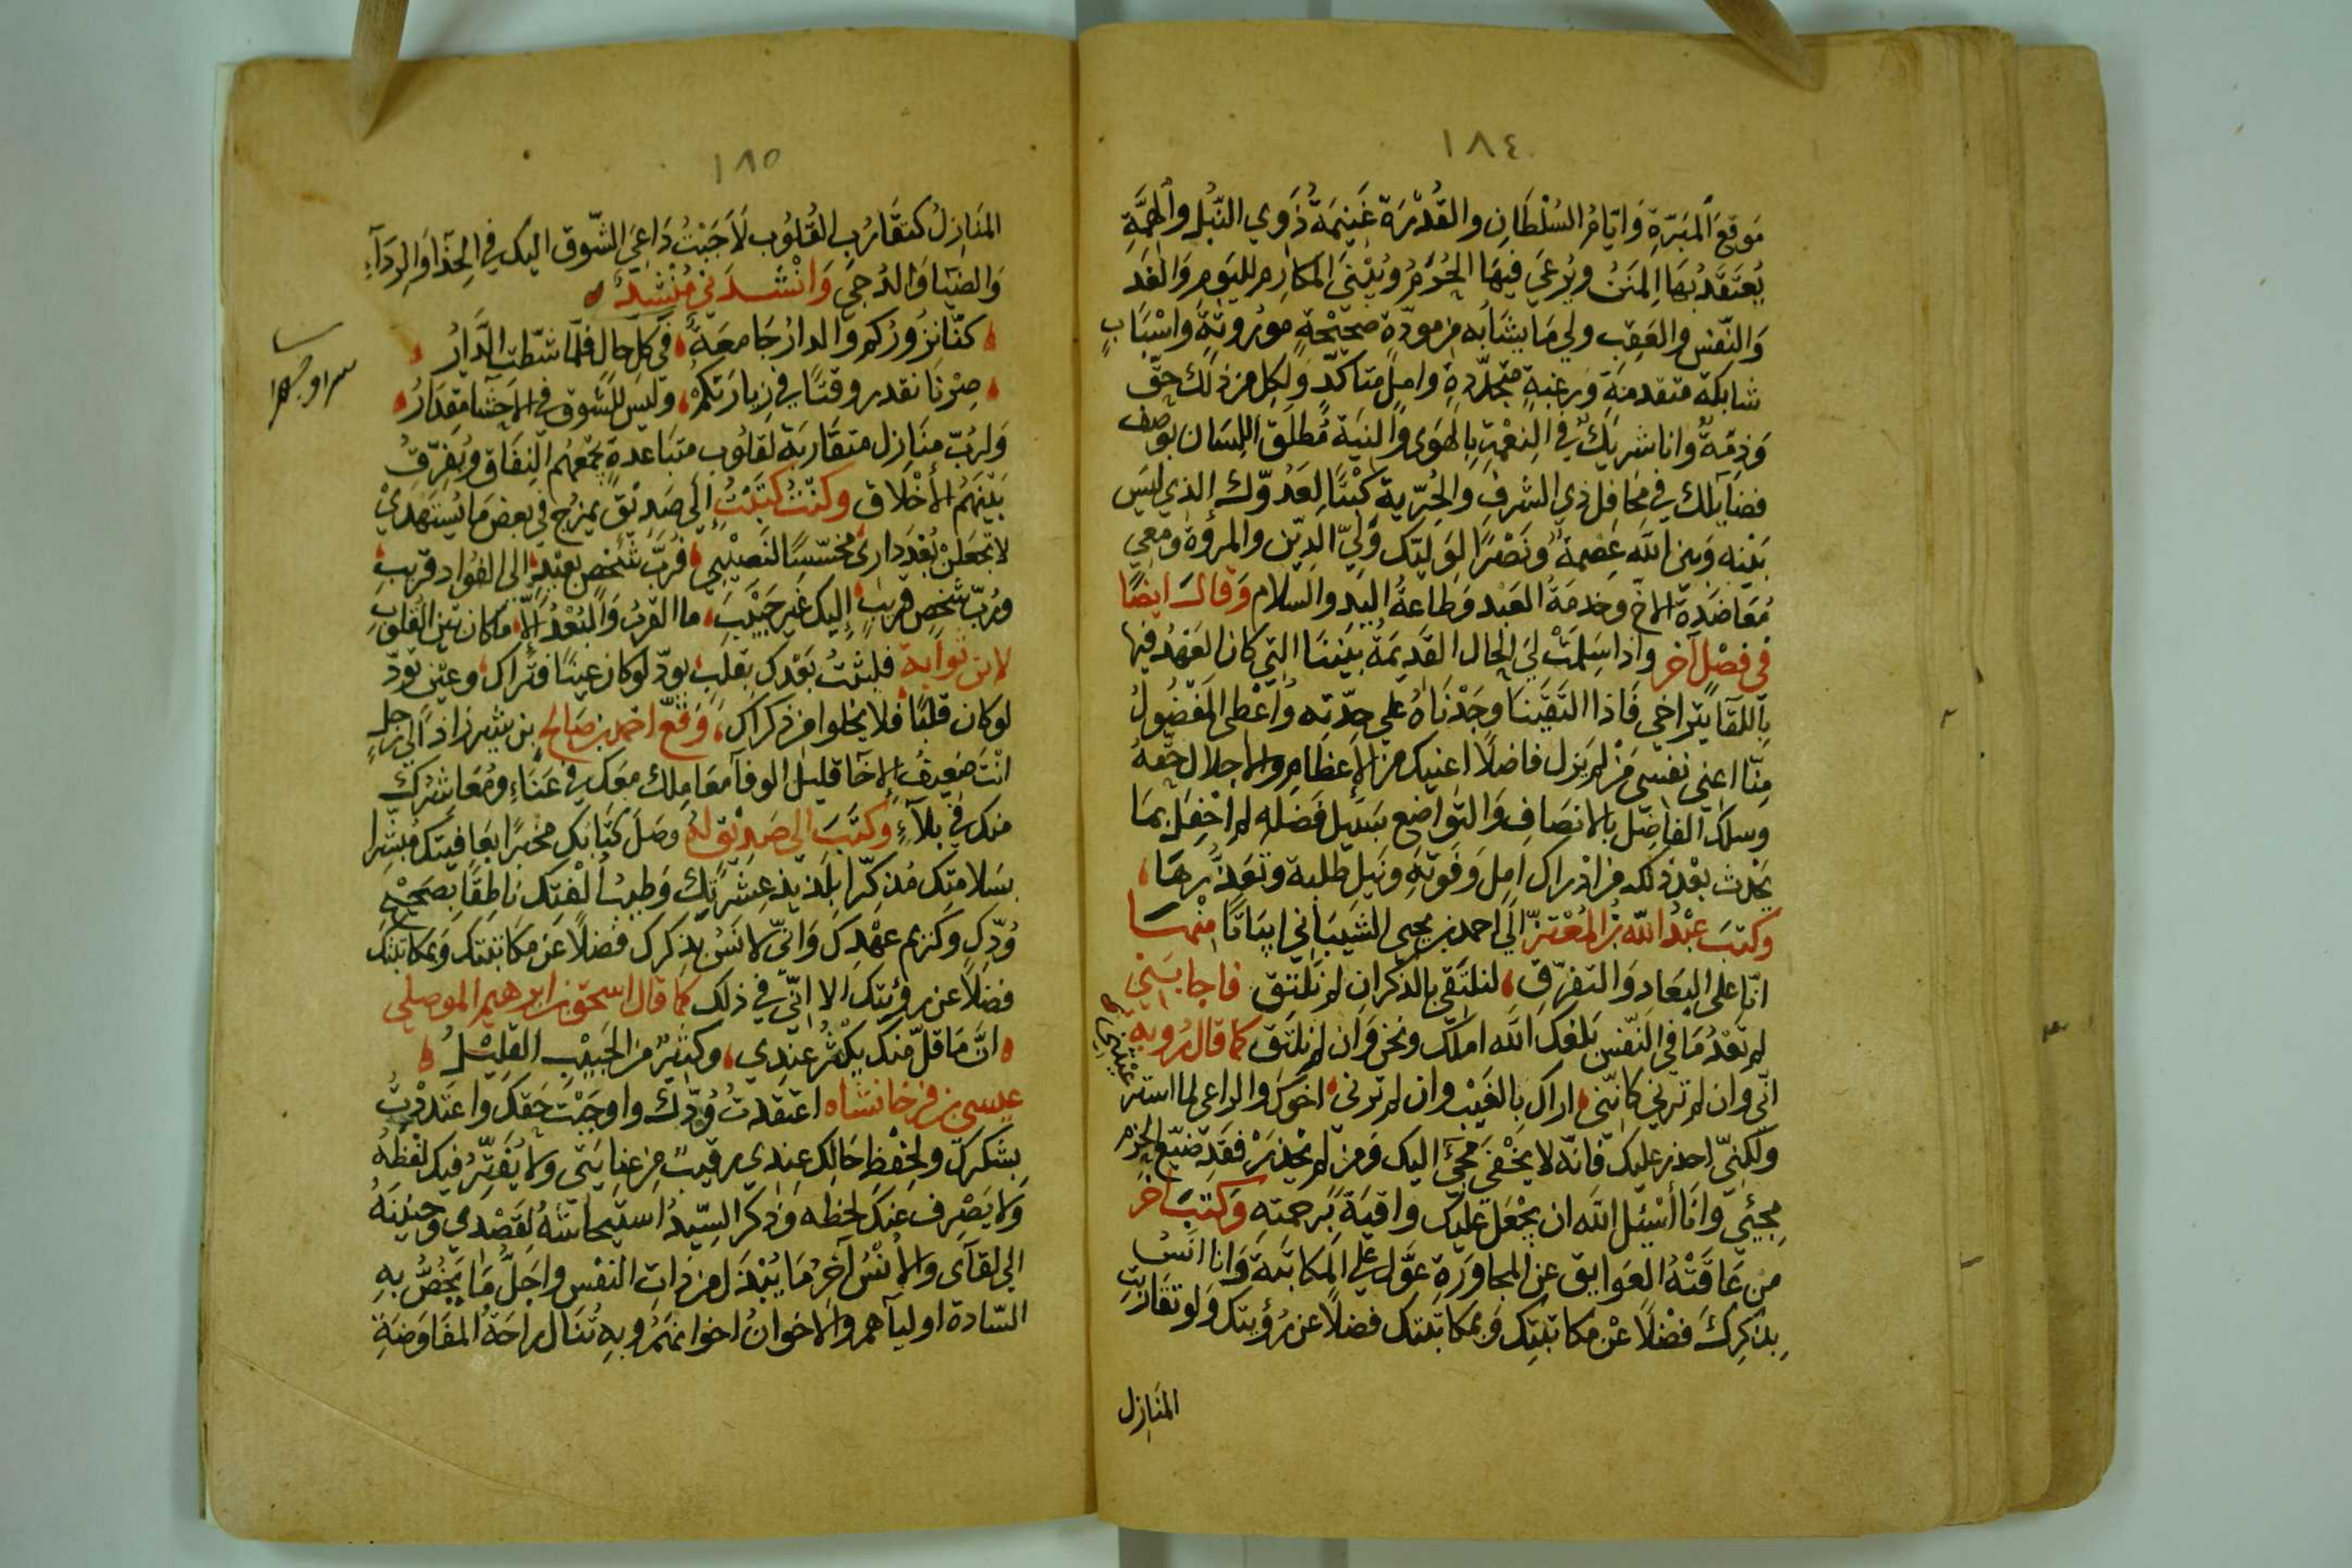 ١٨٤
مَوقعَ المَبَرّةِ وَايّامُ السُلْطَانِ والقُدْرَة غَنِيمَةُ ذَوي النُبْلِ والهِمَّةِ
يُعتَقَدُ بهَا المِنَنُ ويُرعَى فيهَا الحُرَمُ ويُبْنَى المكَارِم لليَومِ وَالغَد
وَالنّفس والعَقِب ولي مَا يشابه من مودّة صحيْحةٍ مورُوثةٍ واسْبَابٍ
شابكة متقدمةٍ وَرغبةٍ متجدّدةٍ واملٍ متاكّد وَلكل من ذلك حقّ
وَذِمّةٌ وانا شريكٌ في النِعْمةِ بِالهَوى والنيَة مُطلَق اللِسَان بوَصف
فضايلك في محَافِل ذي الشرف والحُرّية كبْتًا لِعَدُوّك الذي ليس
بَيْنه وَبين الله عِصْمةٌ ونَصْرًا لوَليّك وَليّ الدِيْن والمروة ومعي
مُعَاضَدة الاخ وخدمَةُ العَبْد وَطاعةُ اليَدِ والسلام وَقالَ ايضًا
في فصْل آخر واذا سَلِمَتْ لي الحال القديمَةُ بيننا التي كان العَهْدُ فيها
باللقا يتراخى فَاذا التَقَيْنا وجَدْنَاهُ على جدّته وأعْطى المَفْضُولُ
مِنّا اعني نفسي مَنْ لم يَزل فاضلًا اعنيك من الإعظام والاجلال حقّهُ
وسلك الفاضِل بالانصَاف وَالتواضع سَبيل فَضْله لم احْفِل بمَا
يَحْدث بعْد ذلك من ادْراك امل وَفَوته وَنَيل طلبة وتعَذّرهَا
وكتبَ عبْدُ الله بن المُعْتز الى احمد بن يحيى الشيبَاني ابيَاتًا منْهَا
انّا على البعَاد وَالتفرّق لنلتَقي بالذكران لم نَلْتق فاجابَني
لم تَعْدُ مَا في النّفس بَلغك الله املك ونحن وَان لم نلتَق كما قال رُوبه
انّي وان لم ترني كانّني اراك بالغَيْب وان لم ترني اخوك والراعي لما استر
عَيْتني
ولكنّي احذر عليك فانّه لا يَخْفى مجئ اليك وَمن لم يحْذَرْ فقَد ضيّع الحزم
مجئي وَانَا أسْئل الله ان يَجْعَل عَليْك واقيَةً برحمته وَكتبَ آخر
من عَاقَتْهُ العَوايق عن المجاوَرَةِ عوّل على المكاتبَة وَانا آنَسُ
بِذكِركَ فضْلًا عنْ مكاتبتِك وَبمكاتبَتك فضلًا عن رُؤيتك وَلو تقَاربت
المنَازِل
١٨٥
المنَازِلُ كتقَارُبِ القُلُوب لَاَجَبْتُ دَاعيَ الشّوق اليك في الحِذَا وَالرِدَآءِ
وَالضيَا وَالدُجى وَانْشَدَني مُنْشِدٌ
كنّا نزوركم والدارُ جَامعَةٌ في كل حالٍ فلمّا شطّت الدّارُ
صِرْنَا نقدر وقتًا في زيارتكُم وَليس للشوق في الاحشا مقدَارُ
وَلرُبّ منَازِل متقَاربَة لقلوب متبَاعدةٍ يجْمَعهُم النِفَاق ويُفَرّقُ
بيْنهُم الأخْلاق وكنْتُ كتَبْتُ الى صَديْق يمزج في بعض مَا يستهديْ
لا تجعلنْ بُعْدَ داري مخسّسًا لنَصِيْبي فرُبّ شخصٍ بعيْدٍ الى الفؤاد قريب
ورُبّ شخصٍ قريبٍ اليك غَير حَبيْب ما القرْبُ وَالبُعْدُ إلّا ما كان بَيْن القلوب
لابن ثوابة فلبثت بَعْدك بقلبٍ يودّ لوكان عينًا فترَاك وعيْنٍ تودّ
لوكان قلبًا فلا يخلوا من ذكراك وَقّع احمد بن صَالح بن شيرزاذ الى رجلٍ
انْتَ ضَعِيفُ الاخآ قليل الوفآ معَاملك معَك في عنَاءٍ ومُعَاشرُك
منك في بلآءٍ وَكتَبَ الى صَديْق لهُ وصَلَ كتَابُك مخْبرًا بعَافيتك مُبَشّرا
بسَلامتِك مُذكّرًا بلَذيذ عِشْرَتك وَطيْب ألْفتك ناطِقًا بصحّة
وُدّك وكريم عهْدك وَانّي لآنَسُ بذكرك فضلًا عن مكاتبتك وَبمكاتبتك
فضلًا عن رؤيتك الا انّي في ذلك كما قال اسحق بن ابرهيم الموصلي
انّ مَا قلّ منك يكْثُر عندي وكثيْر من الحَبيْب القليْلُ
عيسى بن فرخانشاه اعتقدتُ وُدّك واوجَبْتُ حَقّك واعتدَدْتُ
بشكرك ولحفْظِ حَالك عندي رقيبٌ من عنايتي ولا يُفَتّرُ فيك لفْظهُ
ولا يَصْرف عنك لحظه وذكر السيّدُ استيحاشهُ لقصْدي وحنينهُ
الى لقآى والأنسُ آخرُ مَا يُبْذل من ذات النفس واجَلّ مَا يَخُصُّ بهِ
السّادة اوليآهم والاخوانُ اخوانهَمُ وبهِ تُنَال راحَةُ المفَاوَضةِ